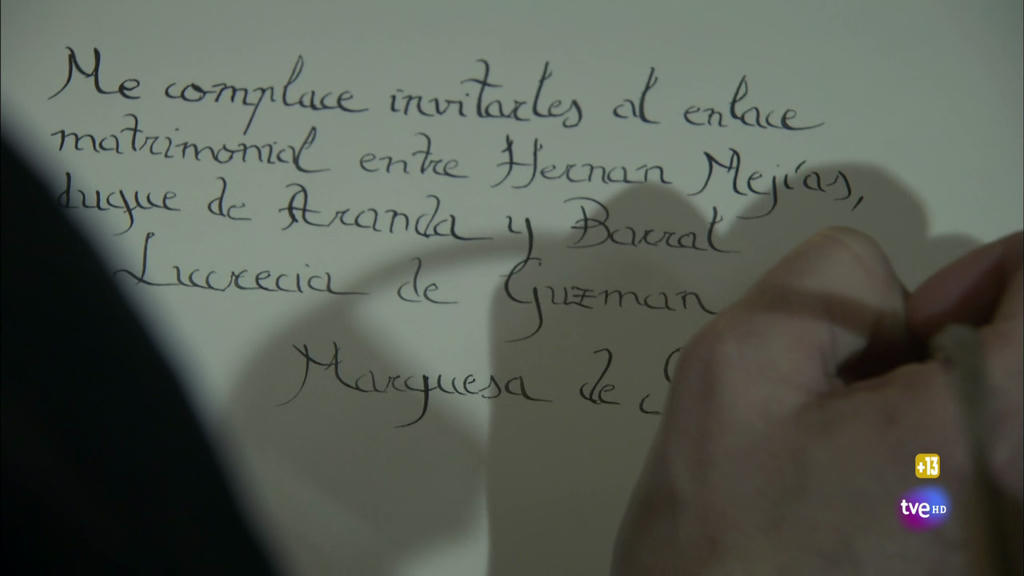 Me complace invitarles al enlace
matrimonial entre Hernan Mejías,
duque de Aranda y Barral
Lucrecia de Guzman
Marquesa de
+13
tve HD